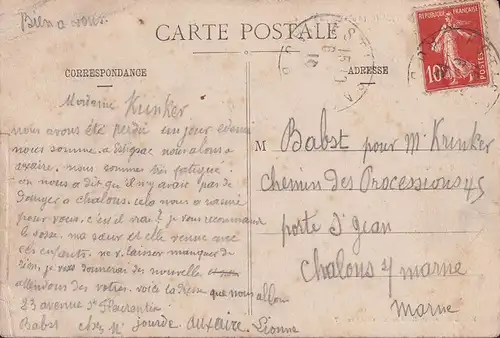 Bien a vous.
CARTE POSTALE
RÉPUBLIQUE FRANÇAISE
10
POSTES
CORRESPONDANCE
ADRESSE
Madame Kunker
nous avons été perdu un jour
nous somme a nous alons a
nous somme très fatigué
on nous a dit qu il n y avait pas de
danger a chalons. cela nous a
pour vous. c'est il vrai? je vous recommande
le ma sœur et elle venue avec
ces enfants. ne laisser manquer de
rien, je vous donnerai des nouvelle et
attendons des votres. voici l'adresse que nous allon
23 avenue St Florentin
Babst chez Mr jourde. auxaire. Lionne
M Babst pour Mr Krinker
Chemin des Processions 45
porte St Jean
Chalons s/ marne
Marne